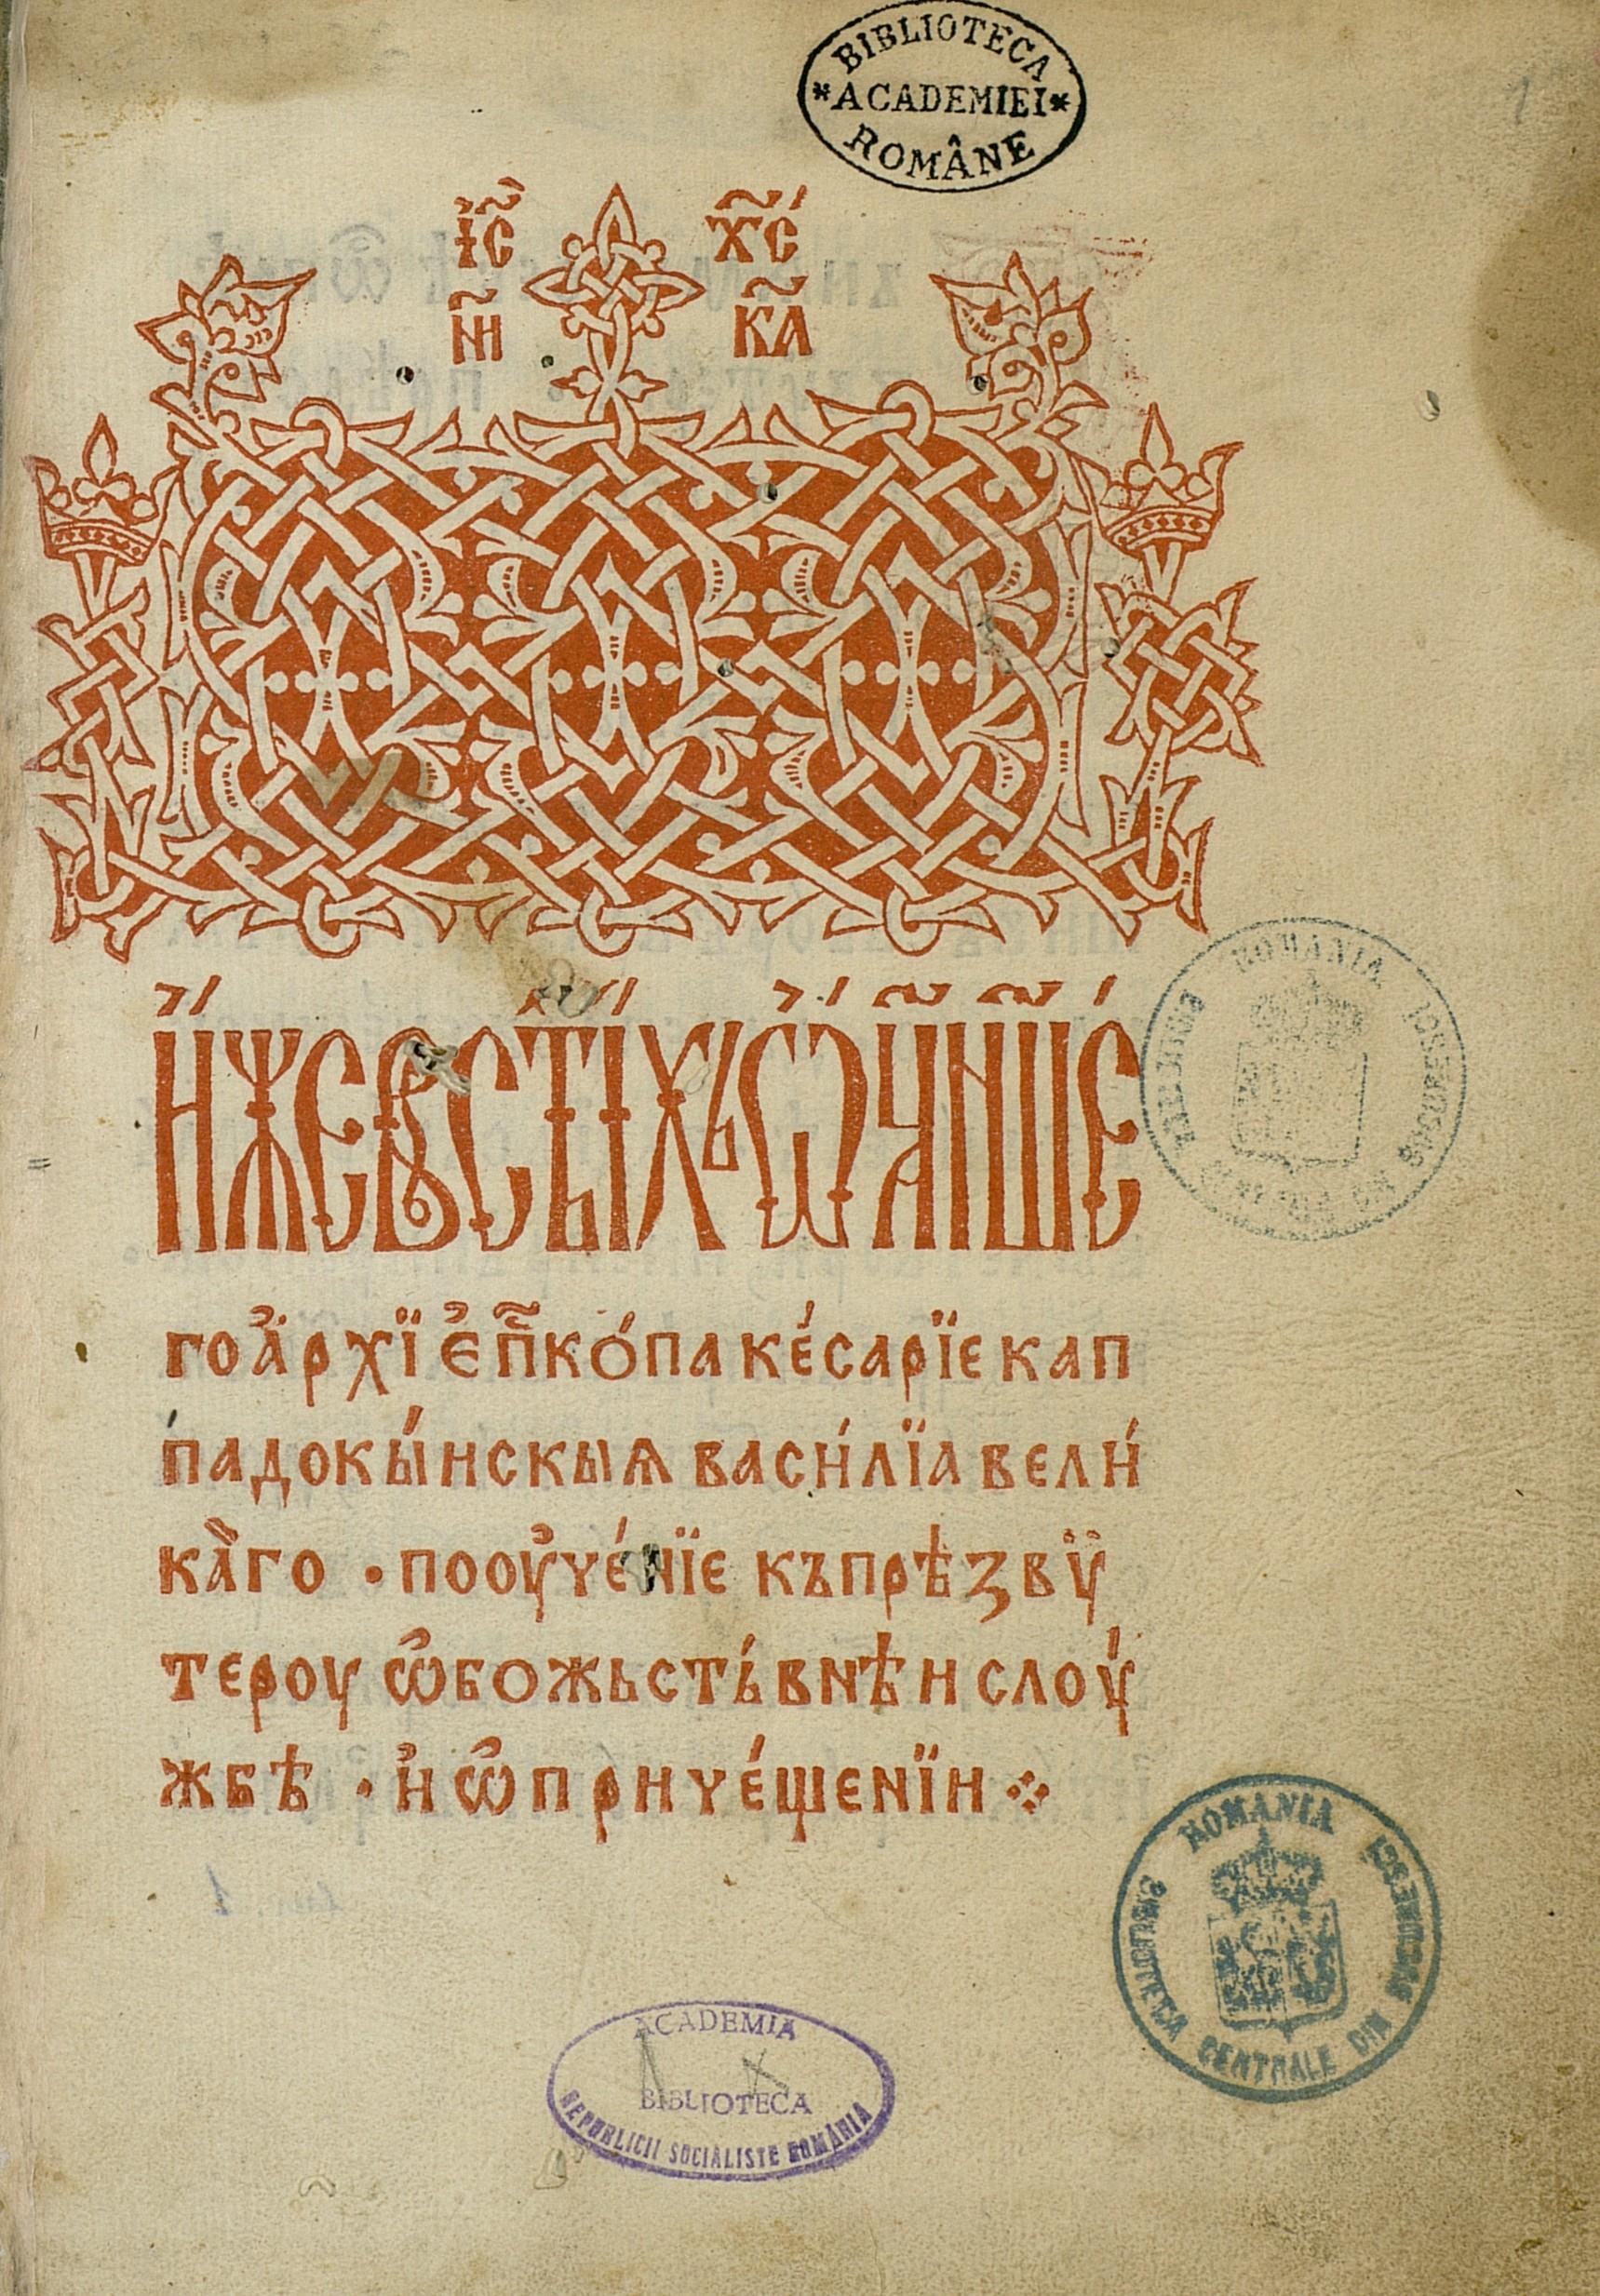 BIBLIOTECA
*ACADEMIEI*
ROMÂNE
1
І҆с҃ Х҃с
Н҃И К҃А
И҆́жевъст҃ы́хъѡ҆́ц҃ан҃ше́
гоа҆рхїе҆п҃ко́паке́сарїекап
падокы́искыѧ васи́лїа вели́
ка̀го · пооу҆че́нїе къпрѣзвѵ̈
тероу ѡ҆божьсть́внѣи слоу́
жбѣ · и҆ ѡ҆приче́щенїи ⁘
ROMANIA
BUCURESCI
ROMANIA
BUCURESCI
BIBLIOTECA CENTRALE DIN
ACADEMIA
BIBLIOTECA
REPUBLICII SOCIALISTE ROMÂNIA